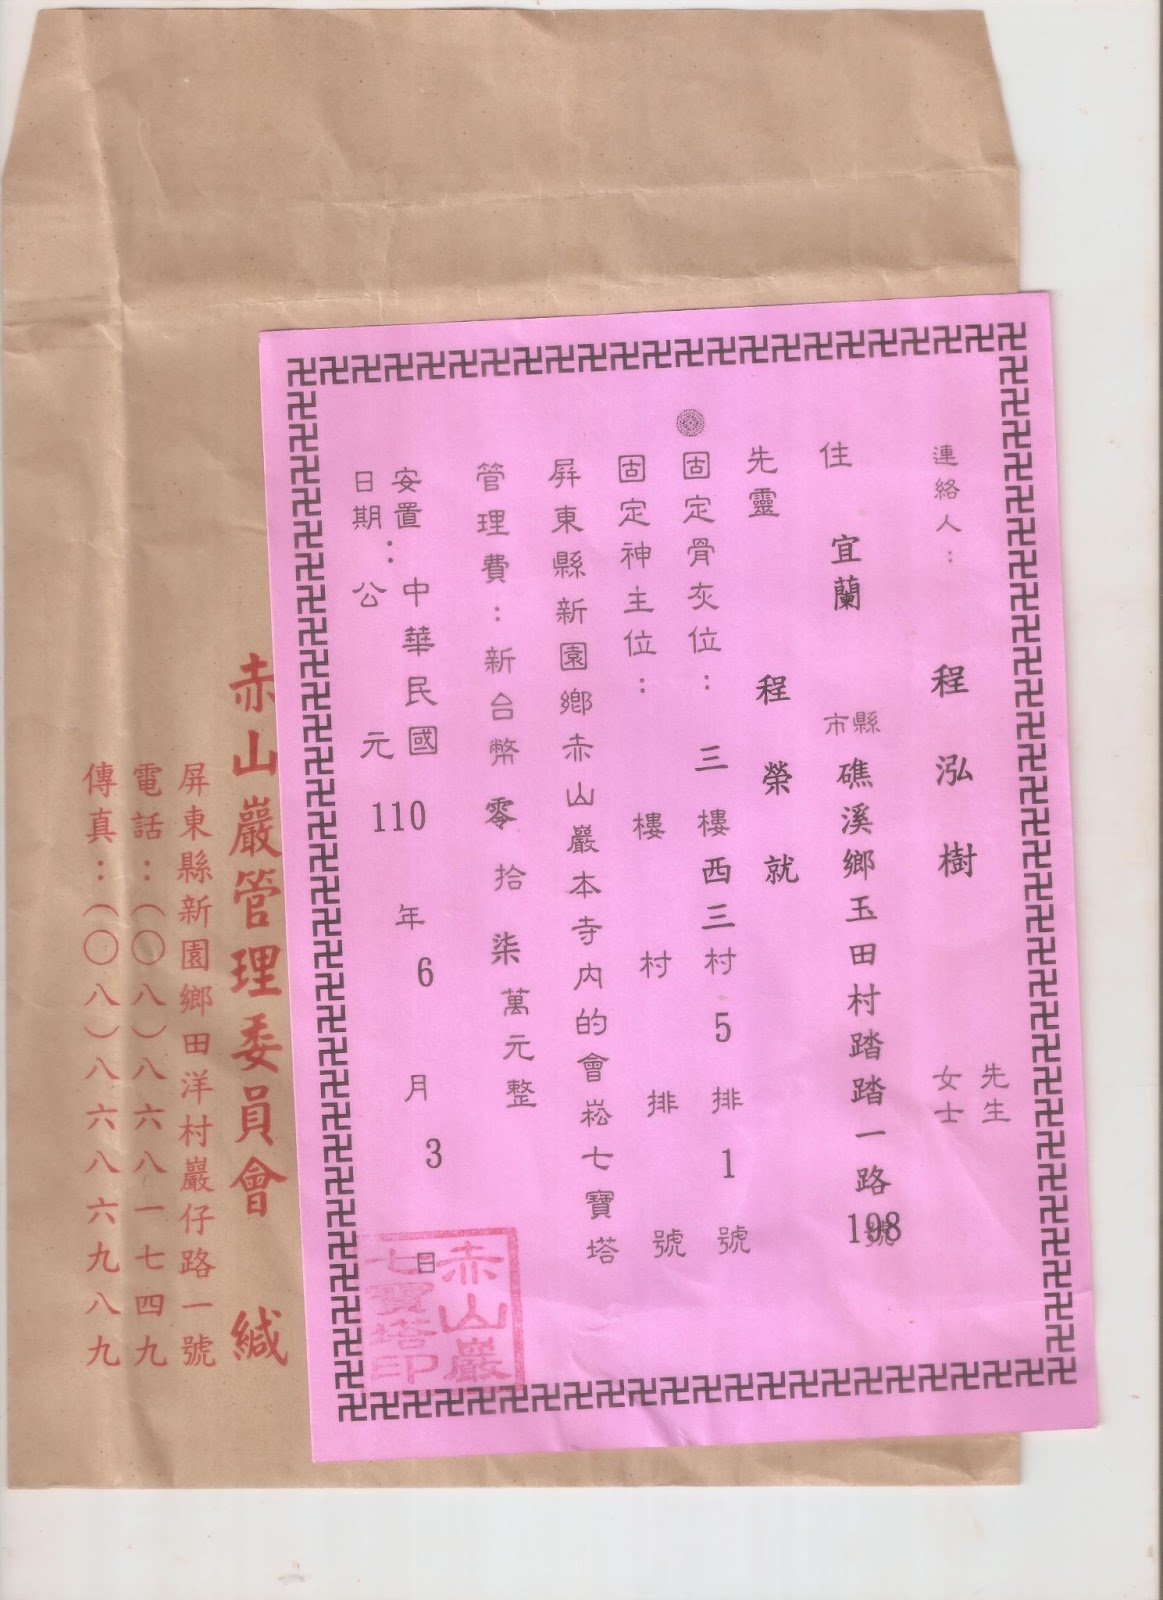 連絡人：程泓樹 先生
女士
住 宜蘭 縣市 礁溪鄉玉田村踏踏一路198號
先靈 程榮就
固定骨灰位：三樓西三村5排1號
固定神主位：樓 村 排 號
屏東縣新園鄉赤山巖本寺內的會崧七寶塔
管理費：新台幣零拾柒萬元整
安置日期：中華民國 公元 110年6月3日
赤山巖七寶塔印
赤山巖管理委員會 緘
屏東縣新園鄉田洋村巖仔路一號
電話：（〇八）八六八一七四九
傳真：（〇八）八六八六九八九